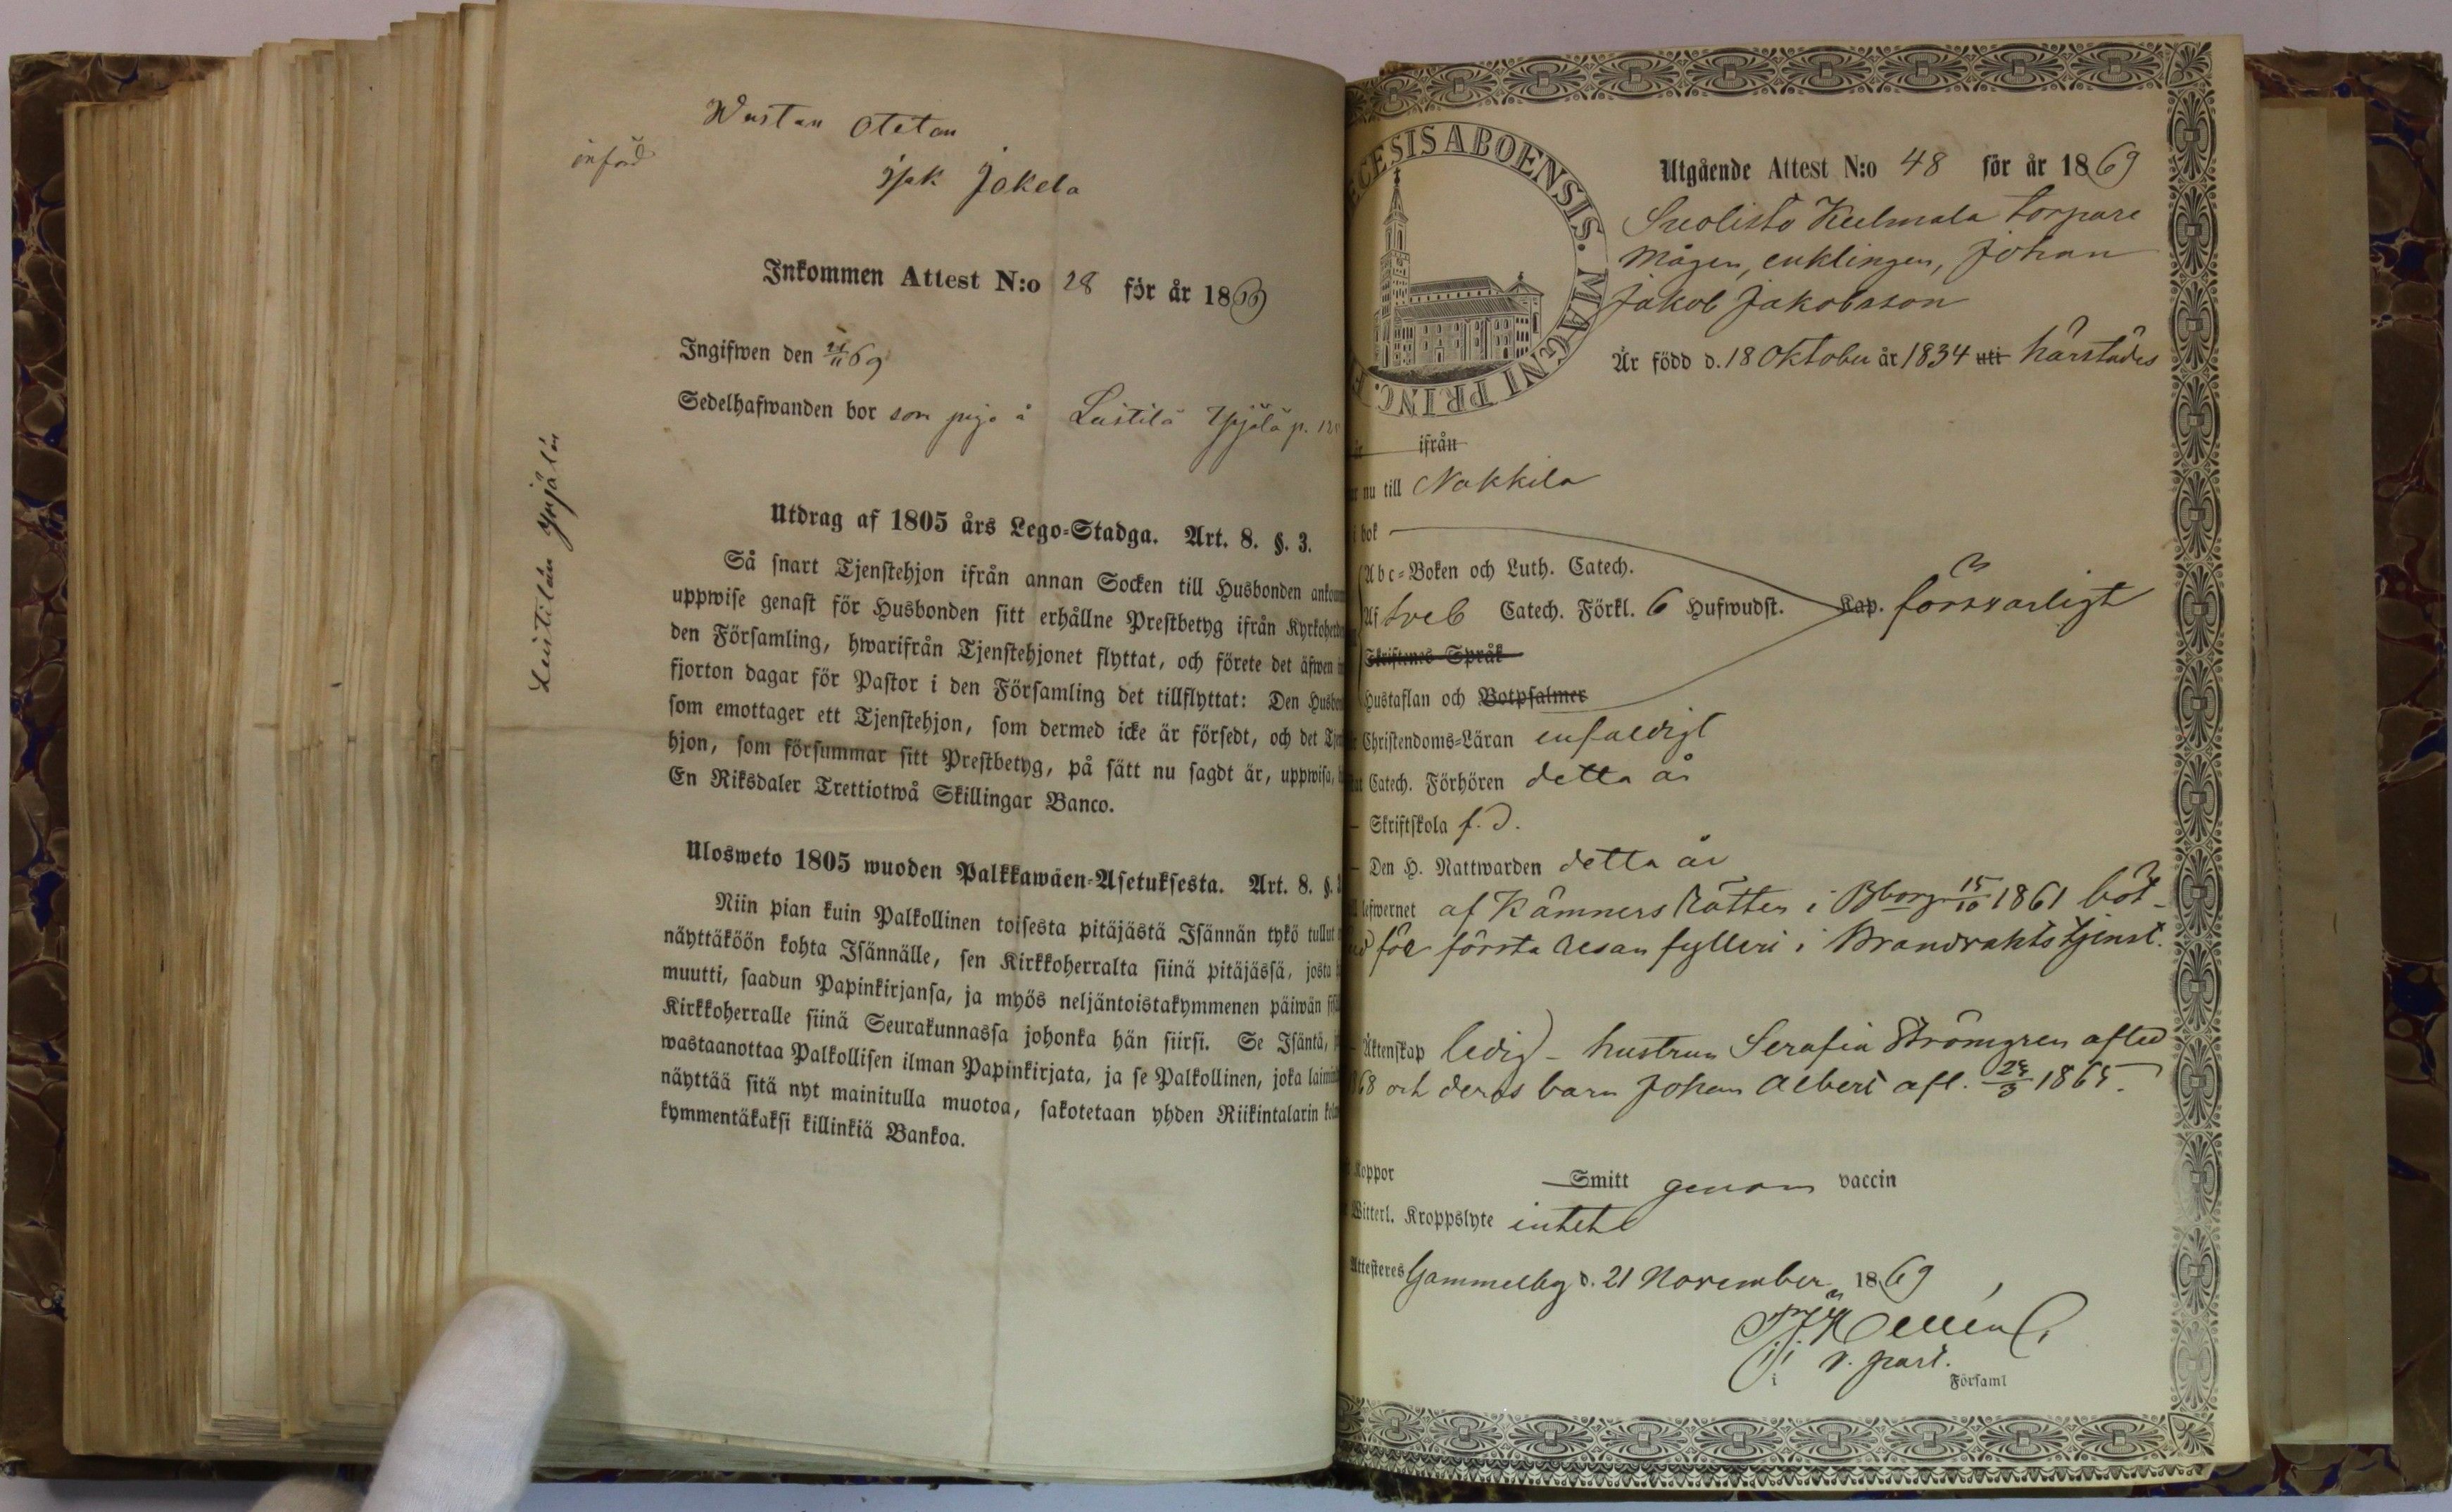 Wustan Otetan
införd
Isak Jakela
Inkommen Attest N:o 28 för år 1869
Ingifwen den 21/11 69
Sedelhafwanden bor som piga å Leistilä Yyjälä p. 12
Leistilän Yyjälän
Utdrag af 1805 års Lego-Stadga. Art. 8. §. 3.
Så snart Tjenstehjon ifrån annan Socken till Husbonden ankom
uppwise genast för Husbonden sitt erhållne Prestbetyg ifrån Kyrkoherde
den Församling, hwarifrån Tjenstehjonet flyttat, och förete det äfwen
fjorton dagar för Pastor i den Församling det tillflyttat: Den Husbon
som emottager ett Tjenstehjon, som dermed icke är försedt, och det Tjen
hjon, som försummar sitt Prestbetyg, på sätt nu sagdt är, uppwisa,
En Riksdaler Trettiotwå Skillingar Banco.
Ulosweto 1805 wuoden Palkkawäen-Asetuksesta. Art. 8. §.
Niin pian kuin Palkollinen toisesta pitäjästä Isännän tykö tullut
näyttäköön kohta Isännälle, sen Kirkkoherralta siinä pitäjässä, josta
muutti, saadun Papinkirjansa, ja myös neljäntoistakymmenen päiwän
Kirkkoherralle siinä Seurakunnassa johonka hän siirsi. Se Isäntä,
wastaanottaa Palkollisen ilman Papinkirjata, ja se Palkollinen, joka laimin
näyttää sitä nyt mainitulla muotoa, sakotetaan yhden Riikintalarin
kymmentäkaksi killinkiä Bankoa.
ECESIS ABOENSIS. MAGNI PRINC. F
Utgående Attest N:o 48 för år 1869
Suolisto Kulmala torpare
Mågen, enklingen, Johan
Jakob Jakobsson
Är född d. 18 Oktober år 1834 uti härstädes
ifrån
nu till Nakkila
i bok
Abc-Boken och Luth. Catech.
Af Sveb Catech. Förkl. 6 Hufwudst. Kap. försvarligt
Skriftenes Språk
Hustaflan och Botpsalmer
Christendoms-Läran enfaldigt
Catech. Förhören detta år
Skriftskola f. d.
Den H. Nattwarden detta år
lefwernet af Kämners Rätten i Bborg 15/10 1861 böt-
för första resan fylleri i Brandvaktstjenst.
Äktenskap ledig - hustrun Serafia Strömgren afled
68 och deras barn Johan Albert afl. 24/3 1865.
Koppor Smitt genom vaccin
Witterl. Kroppslyte intet
Attesteras Gammelby d. 21 November 1869
v. past.
i Församl